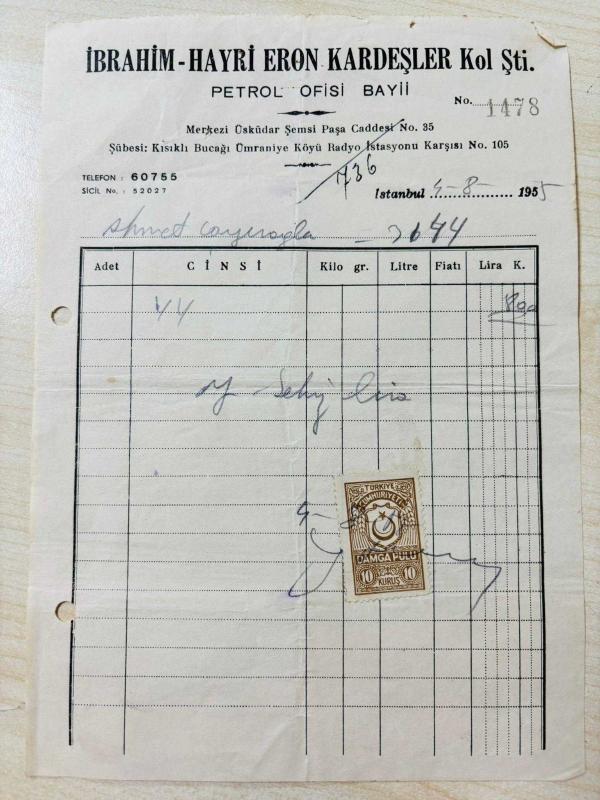 İBRAHİM - HAYRİ ERON KARDEŞLER Kol Şti.
PETROL OFİSİ BAYİİ
No. 1478
Merkezi Üsküdar Şemsi Paşa Caddesi No. 35
Şübesi: Kısıklı Bucağı Ümraniye Köyü Radyo İstasyonu Karşısı No. 105
TELEFON : 60755
SİCİL No. : 52027
736
İstanbul 5-8-1955
Ahmet
Adet CİNSİ Kilo gr. Litre Fiatı Lira K.
44 800
Lira
TÜRKİYE
CUMHURİYETİ
DAMGA PULU
10 KURUŞ 10